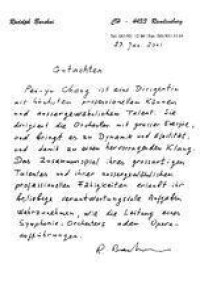 Rudolf Barshai
CH - 4433 Ramlinsburg
27. Jan. 2001
Gutachten
Pei-yu Chang ist eine Dirigentin
mit höchstem professionellen Können
und aussergewöhnlichem Talent. Sie
dirigiert die Orchester mit grosser Energie,
und bringt es zu Dynamik und
und damit zu einem hervorragenden Klang.
Das Zusammenspiel ihres grossartigen
Talentes und ihrer aussergewöhnlichen
professionellen Fähigkeiten erlaubt ihr
beliebige verantwortungsvolle Aufgaben
wahrzunehmen, wie die Leitung eines
Symphonie-Orchesters oder Opern-
aufführungen.